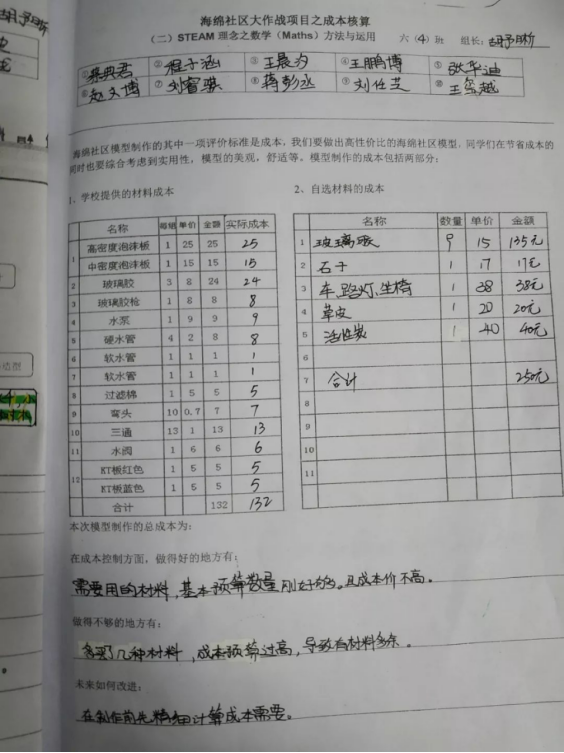 海绵社区大作战项目之成本核算
（二）STEAM 理念之数学（Maths）方法与运用 六（4）班 组长：胡予昕
② 程子涵 ③ 王晨汐 ④ 王鹏博 ⑤ 张华迪
⑥ 赵文博 ⑦ 刘睿骐 ⑧ 蒋彭丞 ⑨ 刘仕芝 ⑩
海绵社区模型制作的其中一项评价标准是成本，我们要做出高性价比的海绵社区模型，同学们在节省成本的
同时也要综合考虑到实用性，模型的美观，舒适等。模型制作的成本包括两部分：
1、学校提供的材料成本
名称 每组 单价 金额 实际成本
1 高密度泡沫板 1 25 25 25
中密度泡沫板 1 15 15 15
2 玻璃胶 3 8 24 24
3 玻璃胶枪 1 8 8 8
4 水泵 1 9 9 9
5 硬水管 4 2 8 8
6 软水管 1 1 1 1
7 软水管 1 1 1 1
8 过滤棉 1 5 5 5
9 弯头 10 0.7 7 7
10 三通 13 1 13 13
11 水阀 1 6 6 6
12 KT板红色 1 5 5 5
KT板蓝色 1 5 5 5
合计 132 132
2、自选材料的成本
名称 数量 单价 金额
1 玻璃胶 9 15 135元
2 石子 1 17 17元
3 车、路灯、坐椅 1 38 38元
4 草皮 1 20 20元
5 活性炭 1 40 40元
6
7 合计 250元
8
9
10
11
本次模型制作的总成本为：
在成本控制方面，做得好的地方有：
需要用的材料，基本预算数量刚好的。且成本价不高。
做得不够的地方有：
多买了几种材料，成本预算过高，导致有材料多余。
未来如何改进：
在制作前先精细计算成本需要。